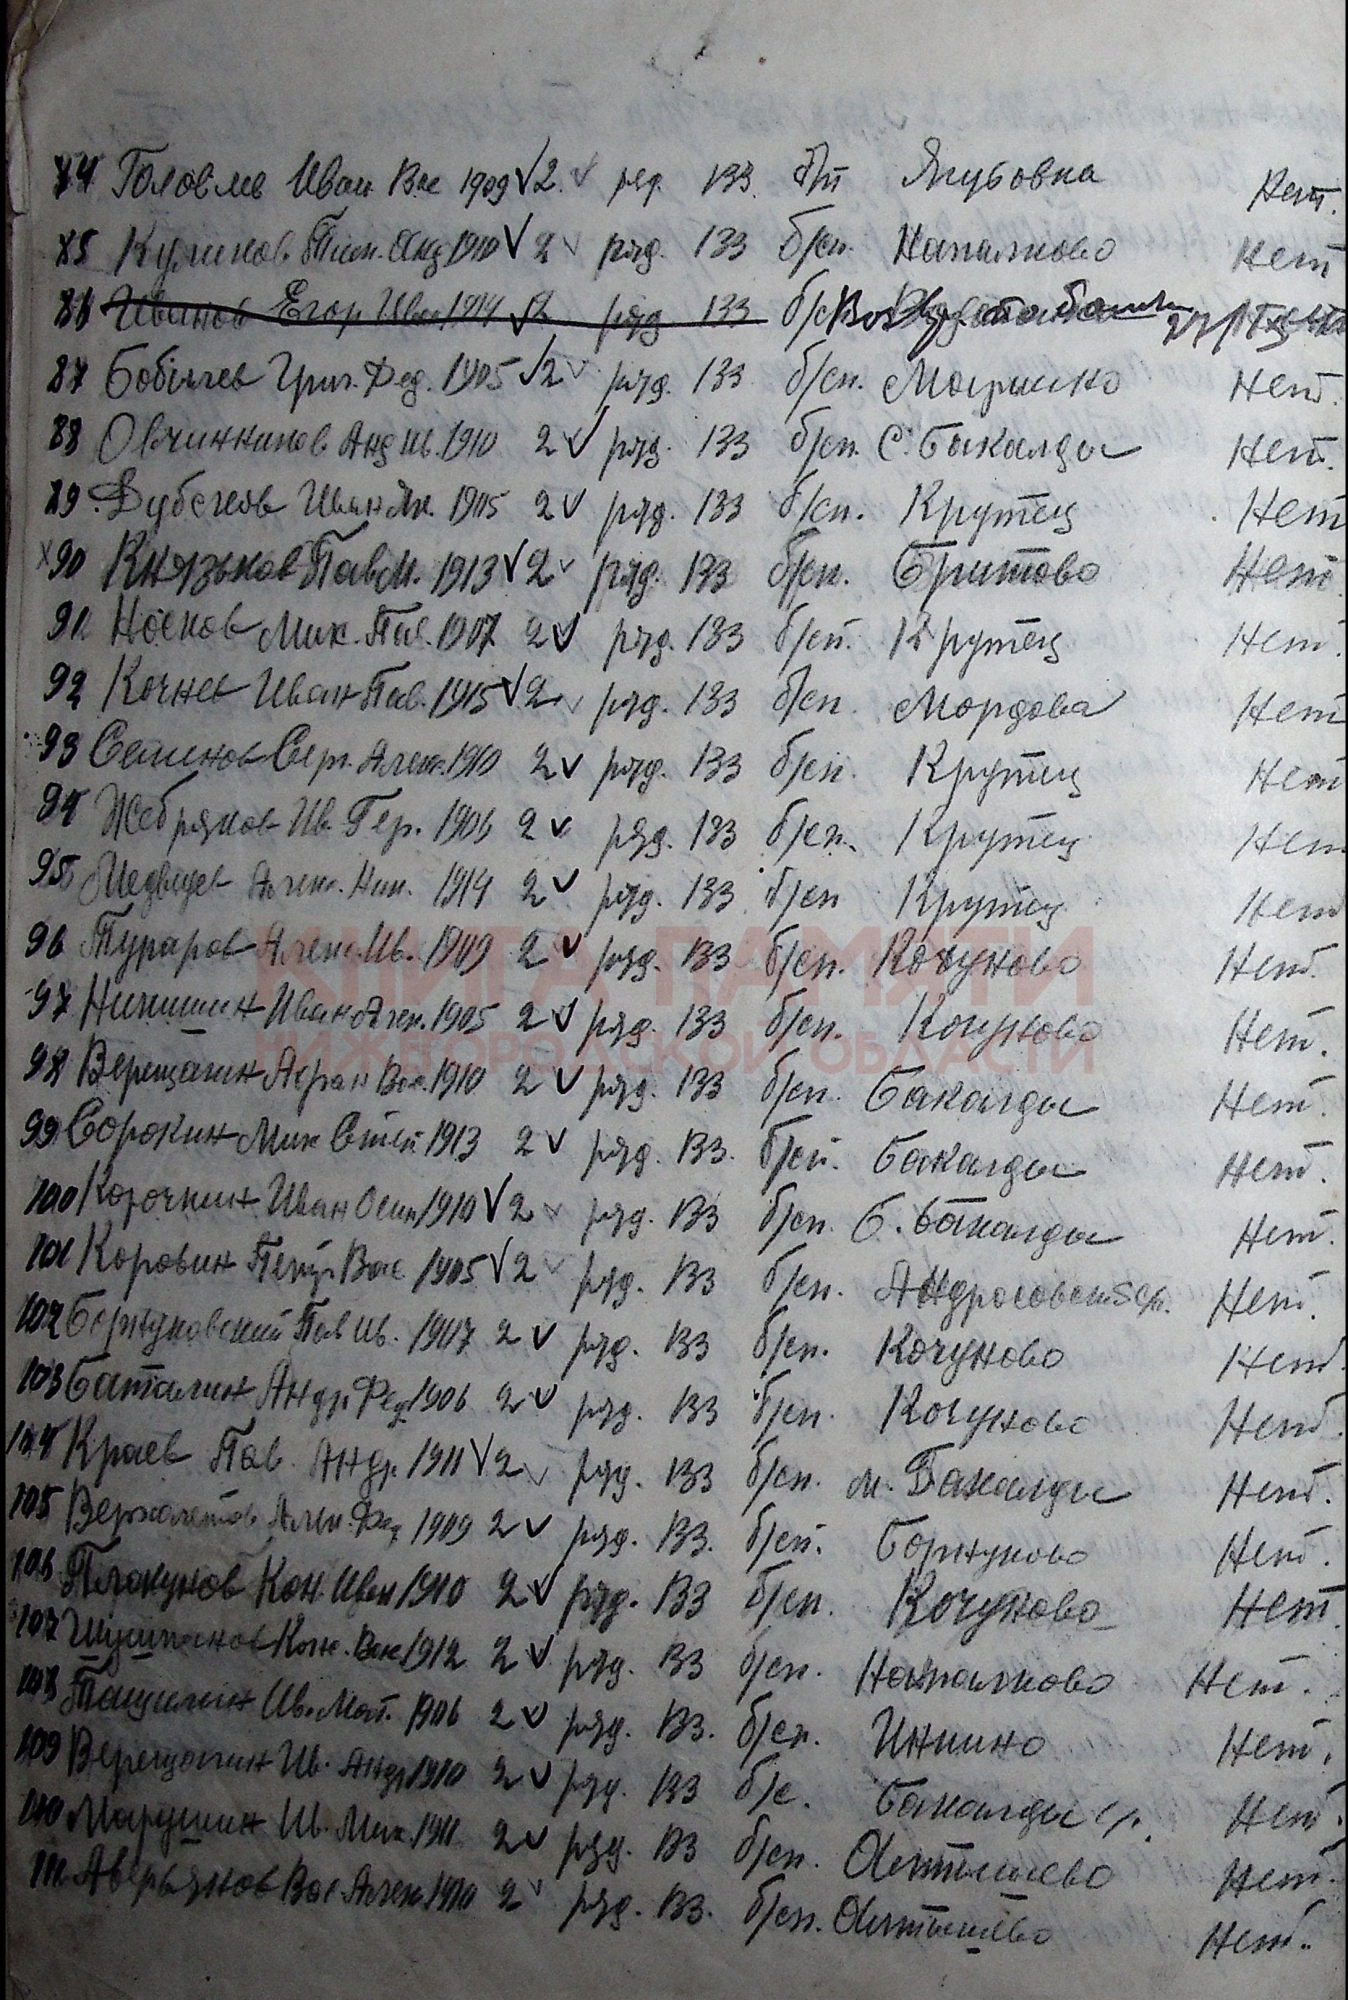 84 Головлев Иван Вас 1909 √ 2 √ ряд. 133 б/п Якубовка Нет.
85 Куликов Тим. Анд 1910 √ 2 √ ряд. 133 б/сп. Напалково Нет
86 Иванов Егор Иван 1914 √ 2 ряд 133 б/с
87 Григ. Фед. 1905 √ 2 √ ряд. 133 б/сп. Нет.
88 Овчинников Анд Ив. 1910 2 √ ряд. 133 б/сп. С. Бакалды Нет.
89 Иван 1905 2 √ ряд. 133 б/сп. Крутец Нет
90 Князьков Пав М. 1913 √ 2 √ ряд. 133 б/сп. Бритово Нет.
91 Носков Мих. Пав. 1907 2 √ ряд. 133 б/сп. Крутец Нет.
92 Кочнев Иван Пав. 1915 √ 2 √ ряд. 133 б/сп. Мордова Нет
93 Семенов Серг. Алек. 1910 2 √ ряд. 133 б/сп. Крутец Нет
94 Жебряков Ив. Гер. 1906 2 √ ряд. 133 б/сп. Крутец Нет
95 Медведев Алек. Ник. 1914 2 √ ряд. 133 б/сп Крутец Нет
96 Алек. Ив. 1909 2 √ ряд. 133 б/сп. Кочуново Нет.
КНИГА ПАМЯТИ
97 Никишин Иван Алек. 1905 2 √ ряд. 133 б/сп. Кочуново Нет.
НИЖЕГОРОДСКОЙ ОБЛАСТИ
98 Верещагин Вас. 1910 2 √ ряд. 133 б/сп. Бакалды Нет.
99 Сорокин Мих Степ. 1913 2 √ ряд. 133. б/сп. Бакалды Нет.
100 Корочкин Иван Осип 1910 √ 2 √ ряд. 133 б/сп. Б. Бакалды Нет.
101 Коровин Петр Вас 1905 √ 2 √ ряд. 133 б/сп. Нет.
102 Боржуковский Пав Ив. 1907 2 √ ряд. 133 б/сп. Кочуново Нет
103 Баталин Андр Фед 1906 2 √ ряд. 133 б/сп. Кочуново Нет.
104 Краев Пав. Андр. 1911 √ 2 √ ряд. 133 б/сп. м. Бакалды Нет.
105 Алек. Фед 1909 2 √ ряд. 133. б/сп. Нет.
106 Плакунов Кон Иван 1910 2 √ ряд. 133 б/сп. Кочуново Нет.
107 Кон. Вас 1912 2 √ ряд. 133 б/сп. Напалково Нет.
108 Ив. Мат. 1906 2 √ ряд. 133. б/сп. Инкино Нет.
109 Верещагин Ив. Андр 1910 2 √ ряд. 133 б/с. Бакалды Нет.
110 Марушин Ив. Мих. 1911 2 √ ряд. 133 б/сп. Ахтышево Нет.
111 Аверьянов Вас Алек 1910 2 √ ряд. 133. б/сп. Ахтышево Нет.